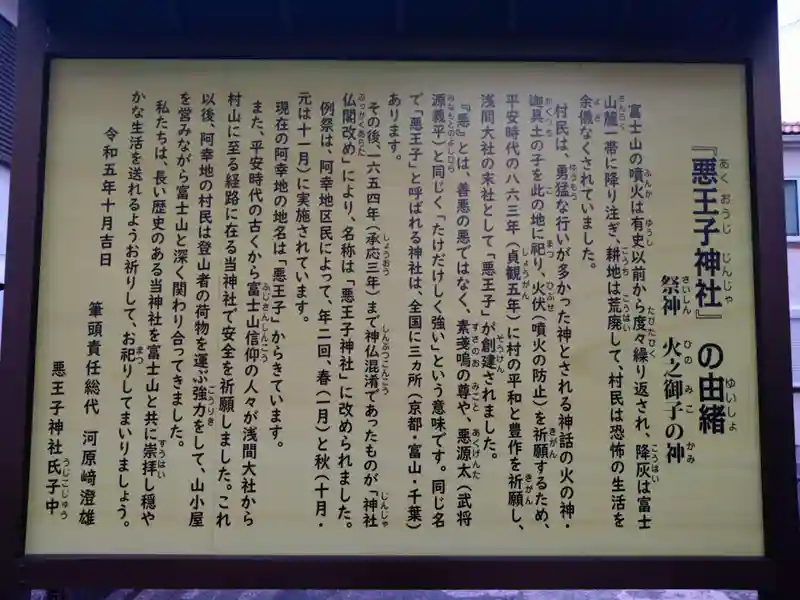 『悪王子神社』の由緒
祭神　火之御子の神
富士山の噴火は有史以前から度々繰り返され、降灰は富士
山麓一帯に降り注ぎ、耕地は荒廃して、村民は恐怖の生活を
余儀なくされていました。
村民は、勇猛な行いが多かった神とされる神話の火の神・
迦具土の子を此の地に祀り、火伏（噴火の防止）を祈願するため、
平安時代の八六三年（貞観五年）に村の平和と豊作を祈願し、
浅間大社の末社として「悪王子」が創建されました。
『悪』とは、善悪の悪ではなく、素戔嗚の尊や、悪源太（武将
源義平）と同じく「たけだけしく強い」という意味です。同じ名
で「悪王子」と呼ばれる神社は、全国に三ヵ所（京都・富山・千葉）
あります。
その後、一六五四年（承応三年）まで神仏混淆であったものが「神社
仏閣改め」により、名称は「悪王子神社」に改められました。
例祭は、阿幸地区民によって、年二回、春（一月）と秋（十月・
元は十一月）に実施されています。
現在の阿幸地の地名は「悪王子」からきています。
また、平安時代の古くから富士山信仰の人々が浅間大社から
村山に至る経路に在る当神社で安全を祈願しました。これ
以後、阿幸地の村民は登山者の荷物を運ぶ強力をして、山小屋
を営みながら富士山と深く関わり合ってきました。
私たちは、長い歴史のある当神社を富士山と共に崇拝し穏や
かな生活を送れるようお祈りして、お祀りしてまいりましょう。
令和五年十月吉日
筆頭責任総代　河原﨑澄雄
悪王子神社氏子中